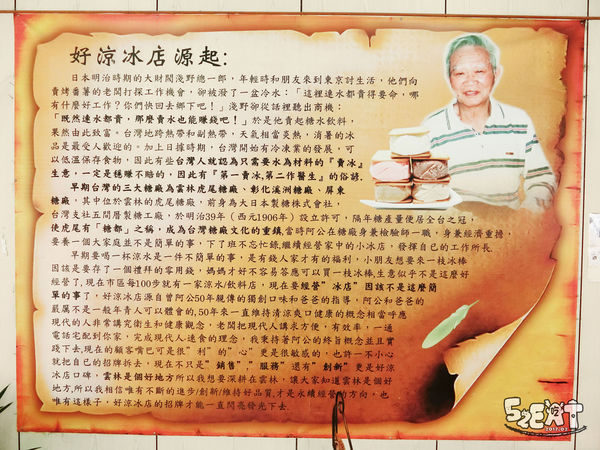 好涼冰店源起:
日本明治時期的大財閥淺野總一郎，年輕時和朋友來到東京討生活，他們向
賣烤番薯的老闆打探工作機會，卻被潑了一盆冷水：「這裡連水都貴得要命，哪
有什麼好工作？你們快回去鄉下吧！」淺野卻從話裡聽出商機：
「既然連水都貴，那麼賣水也能賺錢吧！」於是他賣起糖水飲料，
果然由此致富。台灣地跨熱帶和副熱帶，天氣相當炎熱，消暑的冰
品是最受人歡迎的。加上日據時期，台灣開始有冷凍業的發展，可
以低溫保存食物，因此有些台灣人就認為只需要水為材料的『賣冰』
生意，一定是穩賺不賠的，因此有『第一賣冰,第二作醫生』的俗諺.
早期台灣的三大糖廠為雲林虎尾糖廠、彰化溪洲糖廠、屏東
糖廠，其中位於雲林的虎尾糖廠，前身為大日本製糖株式會社，
台灣支社五間厝製糖工廠，於明治39年（西元1906年）設立許可，隔年糖產量便居全台之冠，
使虎尾有「糖都」之稱，成為台灣糖廠文化的重鎮,當時阿公在糖廠身兼檢驗師一職，身兼經濟重擔，
要養一個大家庭並不是簡單的事，下了班不忘忙錄,繼續經營家中的小冰店，發揮自己的工作所長.
早期要喝一杯涼水是一件不簡單的事，是有錢人家才有的福利，小朋友想要來一枝冰棒
因該是要存了一個禮拜的零用錢，媽媽才好不容易答應可以買一枝冰棒,生意似乎不是這麼好
經營了,現在市區每100步就有一家涼水/飲料店，現在要經營"冰店"因該不是這麼簡
單的事了，好涼冰店源自曾阿公50年親傳的獨創口味和爸爸的指導，阿公和爸爸的
嚴厲不是一般年青人可以體會的,50年來一直維持清涼爽口健康的概念相當呼應
現代的人非常講究衛生和健康觀念，老闆把現代人講求方便，有效率，一通
電話宅配到你家，完成現代人速食的理念，我秉持著阿公的終旨概念並且實
踐下去,現在的顧客嘴巴可是很"利"的"心"更是很敏感的，也許一不小心
就把自己的招牌拆去，現在不只是"銷售","服務"還有"創新"更是好涼
冰店口碑，雲林是個好地方所以我想要深耕在雲林，讓大家知道雲林是個好
地方,所以我相信唯有不斷的進步/創新/維持好品質,才是永續經營的方向，也
唯有這樣子，好涼冰店的招牌才能一直閃亮發光下去.
52EAT
2017.02